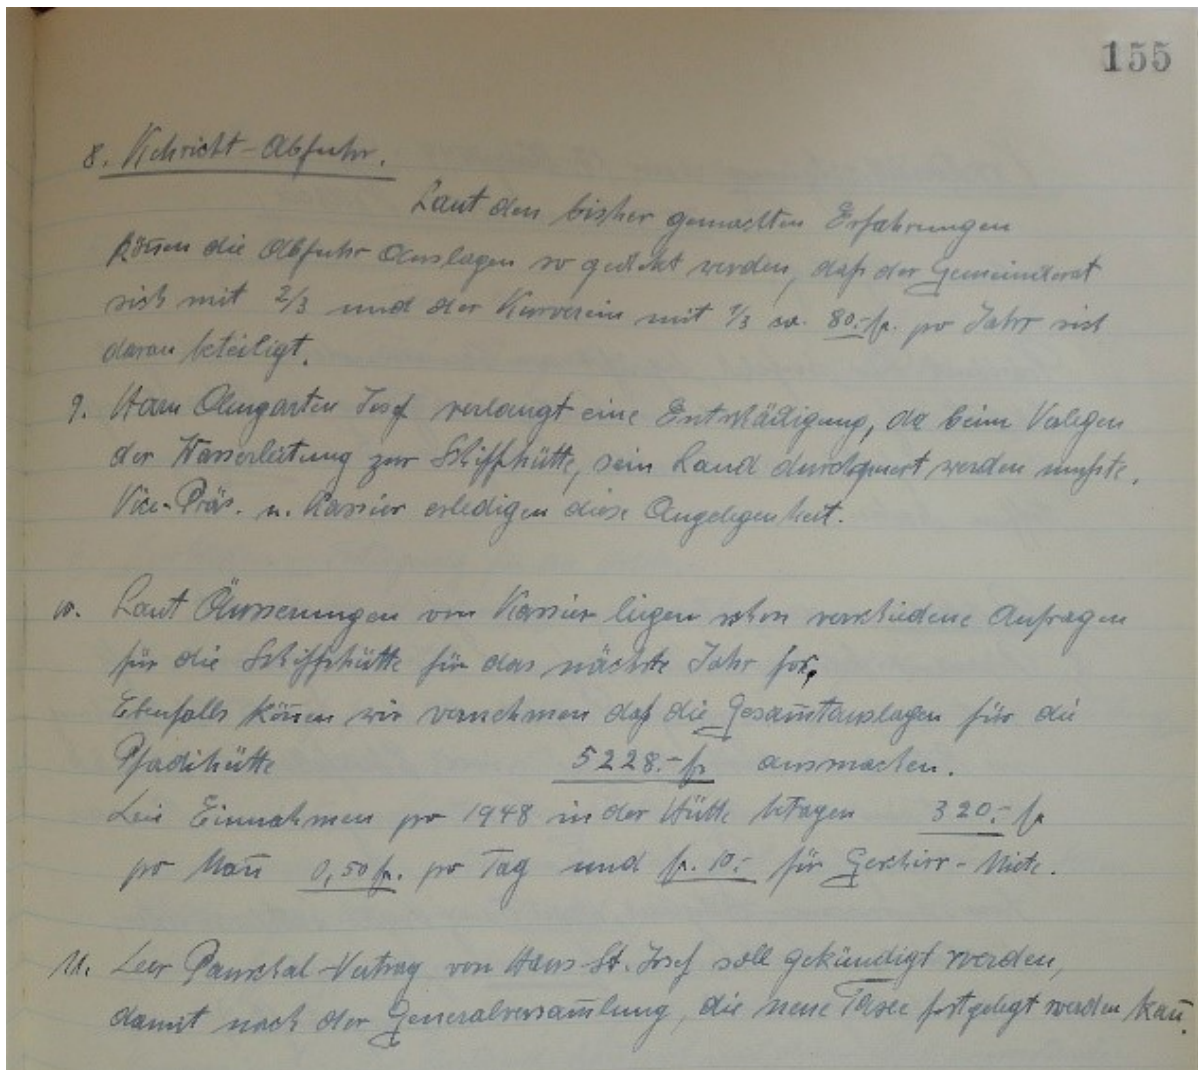 155
8. Kehricht-Abfuhr.
Laut den bisher gemachten Erfahrungen
können die Abfuhr Auslagen so gedekt werden, daß der Gemeinderat
sich mit 2/3 und der Kurverein mit 1/3 ca. 80.- fr. pro Jahr sich
daran beteiligt.
9. Herr Amgarten Josef verlangt eine Entschädigung, da beim Verlegen
der Wasserleitung zur Schiffshütte, sein Land durchquert werden mußte.
Vice-Präs. u. Kassier erledigen diese Angelegenheit.
10. Laut Äusserungen vom Kassier liegen schon verschiedene Anfragen
für die Schiffshütte für das nächste Jahr for,
Ebenfalls können wir vernehmen daß die Gesamtauslagen für die
Pfadihütte 5228.- fr ausmachen.
Die Einnahmen pro 1948 in der Hütte betragen 320.- fr
pro Mann 0,50 fr. pro Tag und fr. 10.- für Geschirr-Miete.
11. Der Pauschal-Vertrag von Haus St. Josef soll gekündigt werden,
damit nach der Generalversammlung, die neue Taxe festgelegt werden kann.